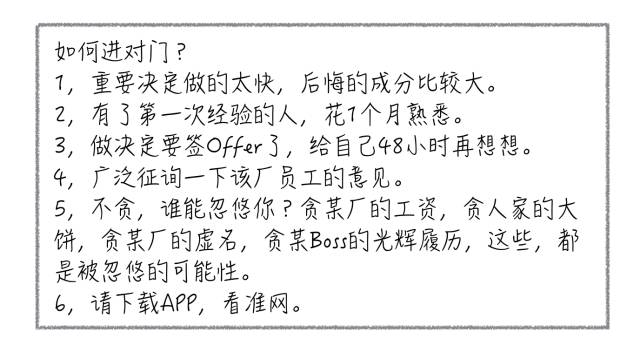 如何进对门？
1，重要决定做的太快，后悔的成分比较大。
2，有了第一次经验的人，花1个月熟悉。
3，做决定要签Offer了，给自己48小时再想想。
4，广泛征询一下该厂员工的意见。
5，不贪，谁能忽悠你？贪某厂的工资，贪人家的大
饼，贪某厂的虚名，贪某Boss的光辉履历，这些，都
是被忽悠的可能性。
6，请下载APP，看准网。